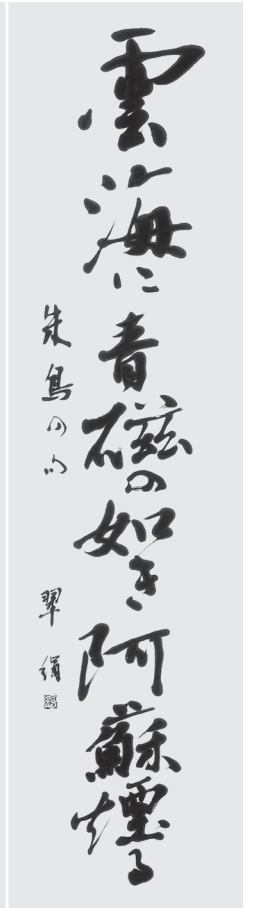 雲海に青磁の如き阿蘇煙る
朱鳥の句
翠絹